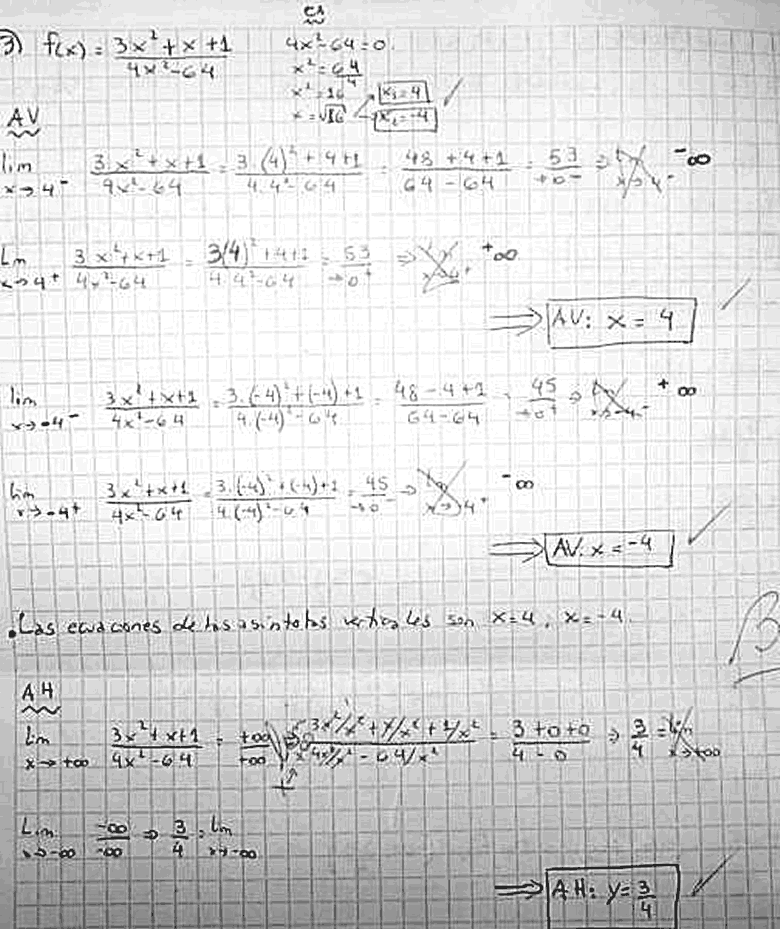 CA
3) f(x) = (3x²+x+1)/(4x²-64)    4x²-64=0.
x² = 64/4
x² = 16    x₁=4
x = √16    x₂=-4
AV
lim x→4⁻ (3x²+x+1)/(4x²-64) = (3.(4)²+4+1)/(4.4²-64) = (48+4+1)/(64-64) = 53/→0⁻ ⇒ -∞
Lim x→4⁺ (3x²+x+1)/(4x²-64) = (3(4)²+4+1)/(4.4²-64) = 53/→0⁺ ⇒ +∞
⇒ AV: x = 4
lim x→-4⁻ (3x²+x+1)/(4x²-64) = (3.(-4)²+(-4)+1)/(4.(-4)²-64) = (48-4+1)/(64-64) = 45/→0⁺ ⇒ +∞
lim x→-4⁺ (3x²+x+1)/(4x²-64) = (3.(-4)²+(-4)+1)/(4.(-4)²-64) = 45/→0⁻ ⇒ -∞
⇒ AV: x = -4
. Las ecuaciones de las asíntotas verticales son x=4; x=-4.
AH
Lim x→+∞ (3x²+x+1)/(4x²-64) = +∞/+∞ (3x²/x²+x/x²+1/x²)/(4x²/x²-64/x²) = (3+0+0)/(4-0) ⇒ 3/4 = lim x→+∞
Lim x→-∞ -∞/-∞ ⇒ 3/4 = lim x→-∞
⇒ AH: y = 3/4